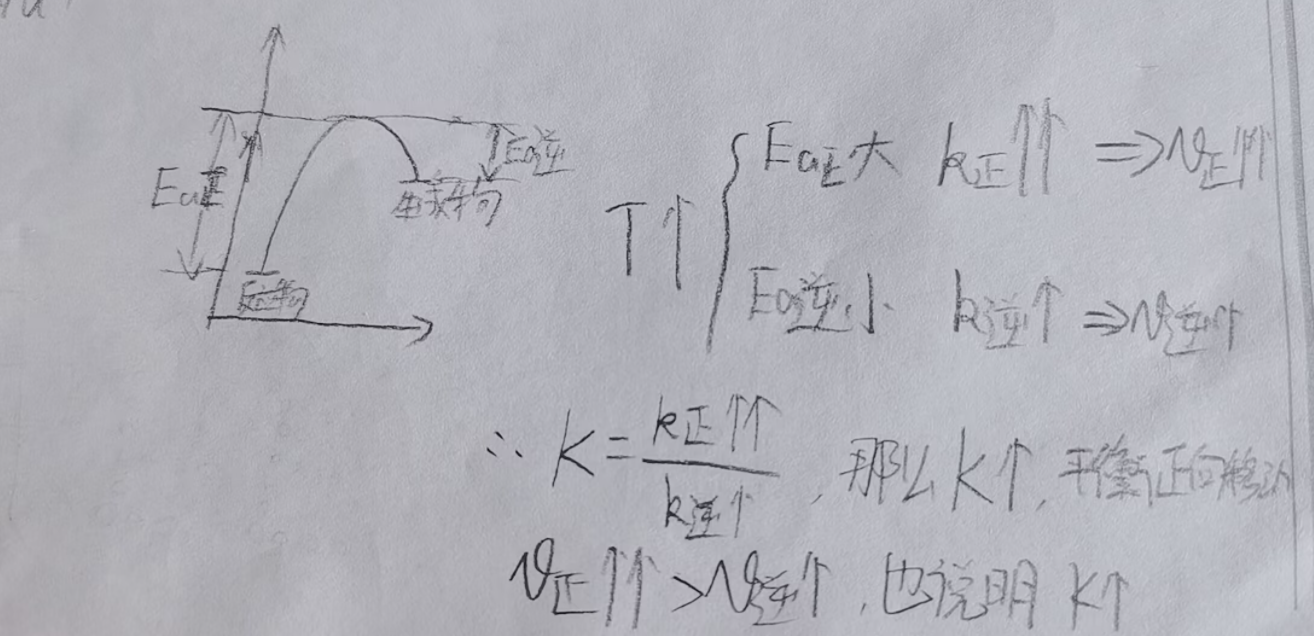 Ea正
Ea逆
生成物
反应物
T↑
Ea正大 k正↑↑ ⇒ v正↑↑
Ea逆小 k逆↑ ⇒ v逆↑
∴ K = k正↑↑ / k逆↑ , 那么 K↑, 平衡正向移动
v正↑↑ > v逆↑, 也说明 K↑